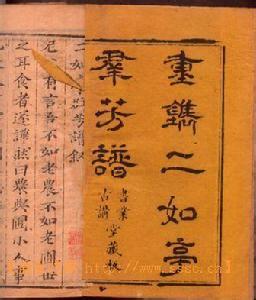 重鐫二如亭
羣芳譜
書業
古講
堂藏板
二如亭羣芳譜敘
尼有言吾不如老農不如老圃世
之耳食者遂謂然曰農與圃小人事